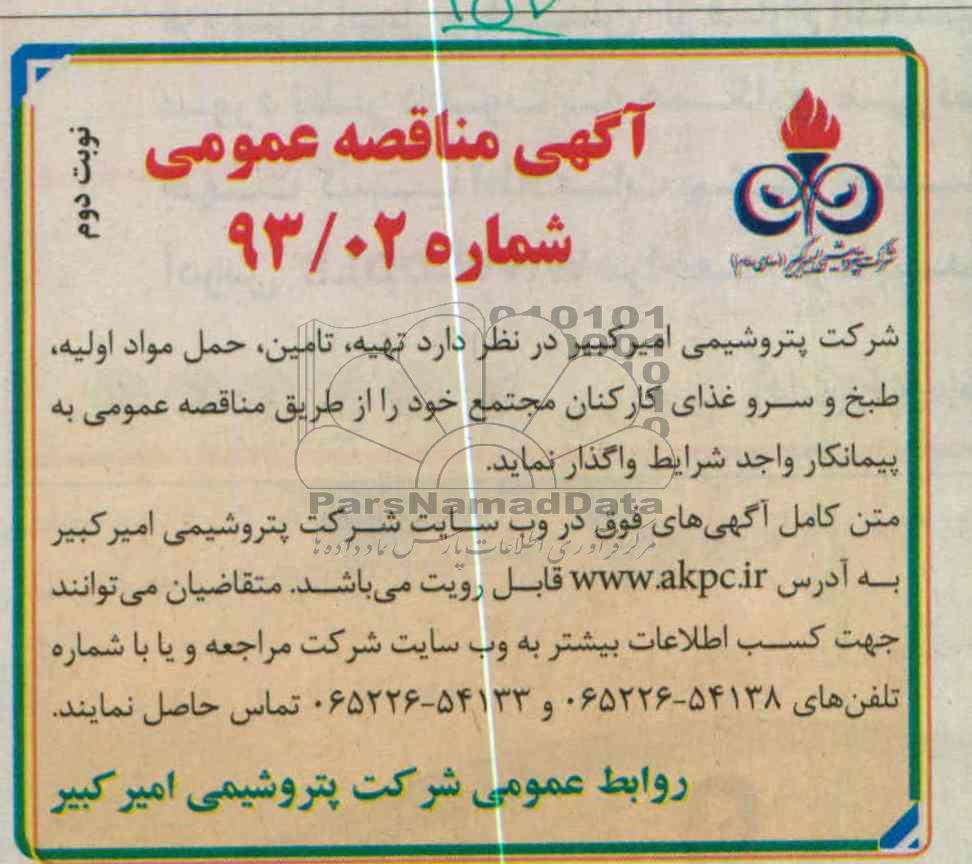 ۱۵۷
نوبت دوم
آگهی مناقصه عمومی
شماره ۹۳/۰۲
شرکت پتروشیمی امیرکبیر (سهامی عام)
شرکت پتروشیمی امیرکبیر در نظر دارد تهیه، تامین، حمل مواد اولیه،
طبخ و سرو غذای کارکنان مجتمع خود را از طریق مناقصه عمومی به
پیمانکار واجد شرایط واگذار نماید.
متن کامل آگهی‌های فوق در وب سایت شرکت پتروشیمی امیرکبیر
به آدرس www.akpc.ir قابل رویت می‌باشد. متقاضیان می‌توانند
جهت کسب اطلاعات بیشتر به وب سایت شرکت مراجعه و یا با شماره
تلفن‌های ۵۴۱۳۸-۰۶۵۲۲۶ و ۵۴۱۳۳-۰۶۵۲۲۶ تماس حاصل نمایند.
روابط عمومی شرکت پتروشیمی امیر کبیر
ParsNamadData
مرکز فرآوری اطلاعات پارس نماد داده ها